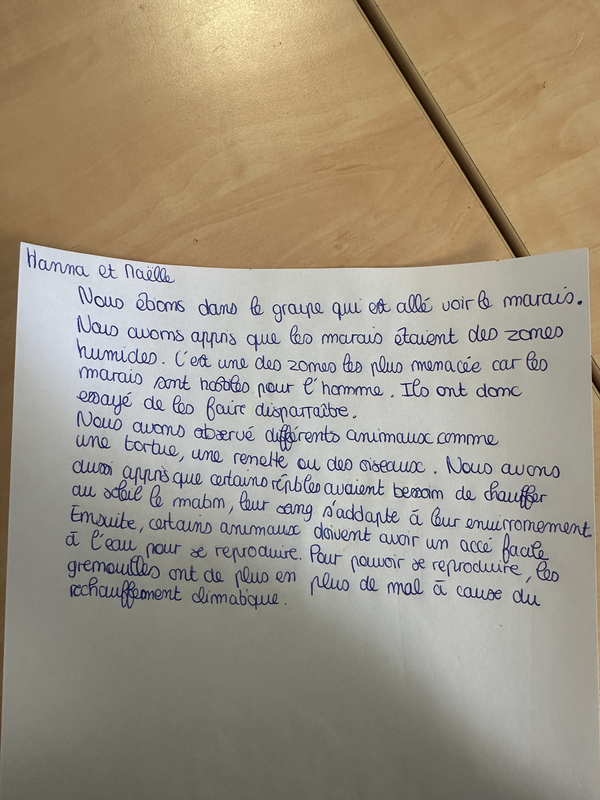 Hanna et Naëlle
Nous étions dans le groupe qui est allé voir le marais.
Nous avons appris que les marais étaient des zones
humides. C'est une des zones les plus menacée car les
marais sont hostiles pour l'homme. Ils ont donc
essayé de les faire disparraître.
Nous avons observé différents animaux comme
une tortue, une renette ou des oiseaux. Nous avons
aussi appris que certains réptiles avaient besoin de chauffer
au soleil le matin, leur sang s'addapte à leur environnement.
Ensuite, certains animaux doivent avoir un accé facile
à l'eau pour se reproduire. Pour pouvoir se reproduire, les
grenouilles ont de plus en plus de mal à cause du
réchauffement climatique.